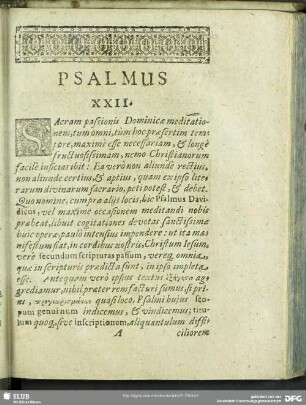 PSALMUS
XXII.
SAcram passionis Dominicæ meditatio-
nem, tum omni, tum hoc præsertim tem-
pore, maximè esse necessariam, & longè
fructuosissimam, nemo Christianorum
facilè inficias ibit: Ea verò non aliundè rectius,
non aliundè certius, & aptius, quam ex ipso lite-
rarum divinarum sacrario, peti potest, & debet.
Quo nomine, cum præ alijs locis, hoc Psalmus Davi-
dicus, vel maximè occasionem meditandi nobis
præbeat, libuit cogitationes devotas sanctissimo
huic operæ, paulò intensius impendere: ut ita ma-
nifestum fiat, in cordibus nostris, Christum Iesum,
verè secundum scripturas passum, vereq; omnia,
quæ in scripturis prædicta sunt, in ipso impleta
esse. Antequam verò ipsius textus
grediamur, nihil præter rem facturi sumus, si pri-
us, quasi loco, Psalmi hujus sco-
pum genuinum indicemus, & vindicemus; titu-
lum quoq; sive inscriptionem, aliquantulum diffi-
A ciliorem
SLUB
DFG